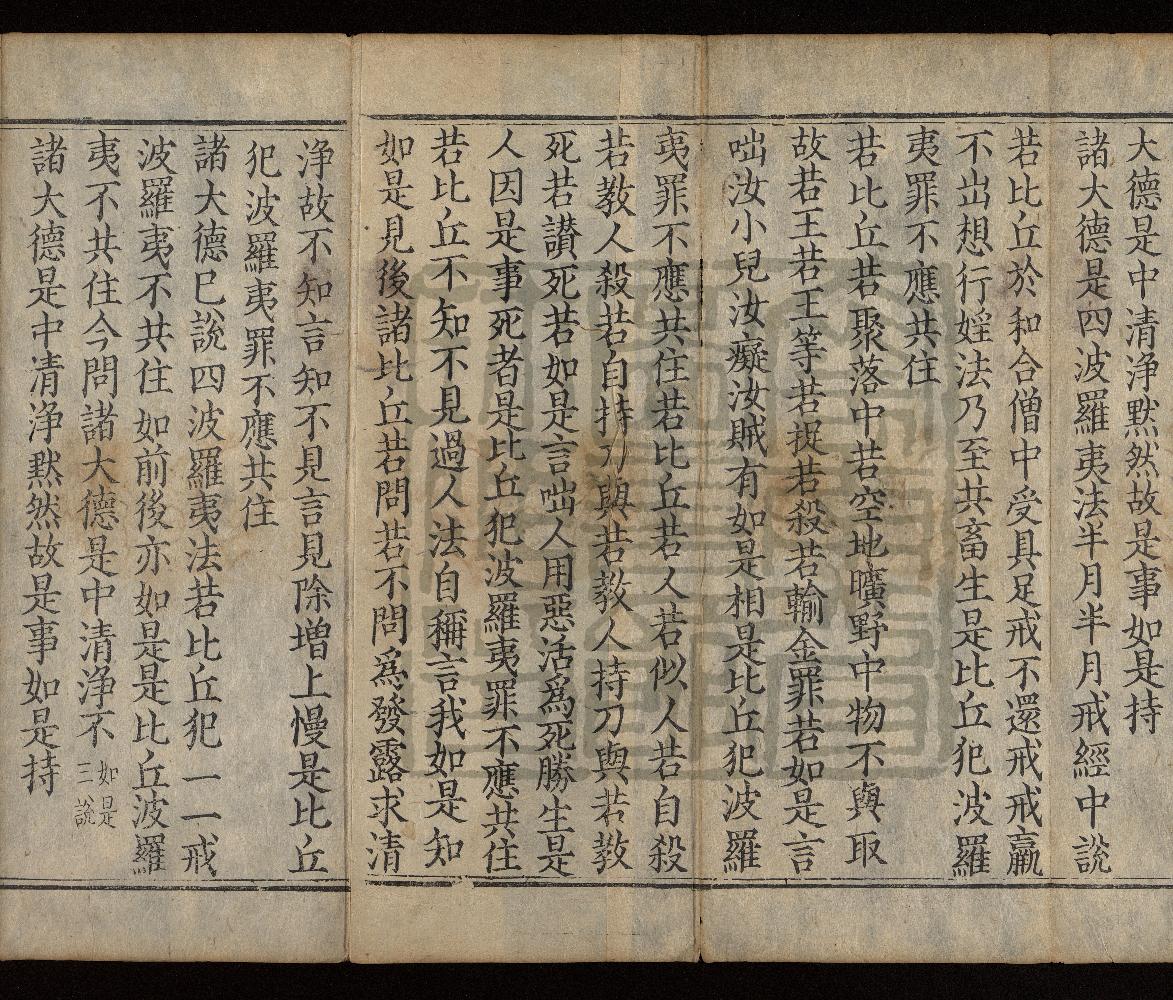 大德是中清淨默然故是事如是持
諸大德是四波羅夷法半月半月戒經中說
若比丘於和合僧中受具足戒不還戒戒羸
不出想行婬法乃至共畜生是比丘犯波羅
夷罪不應共住
若比丘若聚落中若空地曠野中物不與取
故若王若王等若捉若殺若輸金罪若如是言
咄汝小兒汝癡汝賊有如是相是比丘犯波羅
夷罪不應共住若比丘若人若似人若自殺
若教人殺若自持刀與若教人持刀與若教
死若讃死若如是言咄人用惡活爲死勝生是
人因是事死者是比丘犯波羅夷罪不應共住
若比丘不知不見過人法自稱言我如是知
如是見後諸比丘若問若不問爲發露求清
淨故不知言知不見言見除增上慢是比丘
犯波羅夷罪不應共住
諸大德已說四波羅夷法若比丘犯一一戒
波羅夷不共住如前後亦如是是比丘波羅
夷不共住今問諸大德是中清淨不如是三說
諸大德是中清淨默然故是事如是持